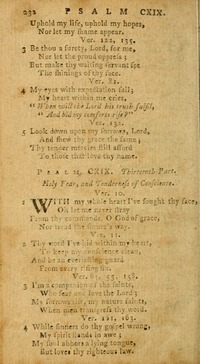 232 PSALM CXIX.
Uphold my life, uphold my hopes,
Nor let my shame appear.
Ver. 122, 135.
3 Be thou a surety, Lord, for me,
Nor let the proud oppress;
But make thy waiting servant see
The shinings of thy face.
Ver. 82.
4 My eyes with expectation fail;
My heart within me cries,
"When will the Lord his truth fulfil,
"And bid my comforts rise?"
Ver. 132.
5 Look down upon my sorrows, Lord,
And shew thy grace the same;
Thy tender mercies still afford
To those that love thy name.
PSALM, CXIX. Thirteenth Part.
Holy Fear, and Tenderness of Conscience.
Ver. 10.
1 WITH my whole heart I've sought thy face,
Oh let me never stray
From thy commands, O God of grace,
Nor tread the sinner's way.
Ver. 11.
2 Thy word I've hid within my heart,
To keep my conscience clean,
And be an everlasting guard
From every rising sin.
Ver. 63, 53, 158.
3 I'm a companion of the saints,
Who fear and love the Lord;
My sorrows rise, my nature faints,
When men transgress thy word.
Ver. 161, 163.
4 While sinners do thy gospel wrong,
My spirit stands in awe;
My soul abhors a lying tongue,
But loves thy righteous law.